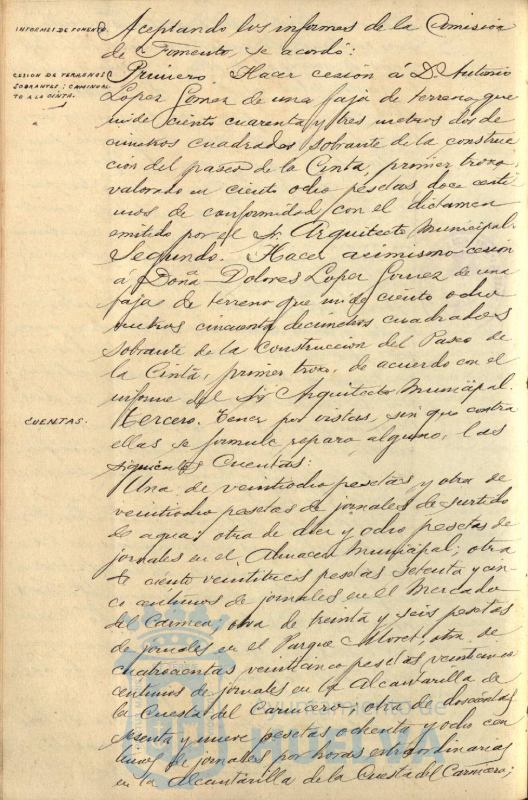 INFORMES DE FOMENTO.
Aceptando los informes de la Comision
de Fomento, se acordó:
CESION DE TERRENOS
SOBRANTES: CAMINO AL-
TO A LA CINTA.
Primero. Hacer cesión á D. Antonio
Lopez Gomez de una faja de terreno, que
mide ciento cuarenta y tres metros dos de
cimetros cuadrados sobrante de la construc
cion del paseo de la Cinta, primer trozo,
valorado en ciento ocho pesetas doce centi
mos de conformidad con el dictamen
emitido por el Sr. Arquitecto Municipal.
Segundo. Hacer asimismo cesión
á Doña Dolores Lopez Gomez de una
faja de terreno que mide ciento ocho
metros cincuenta decimetros cuadrados
sobrante de la construccion del Paseo de
la Cinta, primer trozo, de acuerdo con el
informe del Sr. Arquitecto Municipal.
CUENTAS.
Tercero. Tener por vistas, sin que contra
ellas se formule reparo alguno, las
siguientes Cuentas:
Una de veintiocho pesetas y otra de
veintiocho pesetas de jornales de surtido
de agua; otra de diez y ocho pesetas de
jornales en el Almacen Municipal; otra
de ciento veintitres pesetas setenta y cin-
co centimos de jornales en el Mercado
del Carmen; otra de treinta y seis pesetas
de jornales en el Parque Moret; otra de
cuatrocientas veinticinco pesetas veinticinco
centimos de jornales en la Alcantarilla de
la Cuesta del Carnicero; otra de doscientas
sesenta y nueve pesetas ochenta y ocho cen
timos de jornales por horas extraordinarias
en la Alcantarilla de la Cuesta del Carnicero;
HUELVA